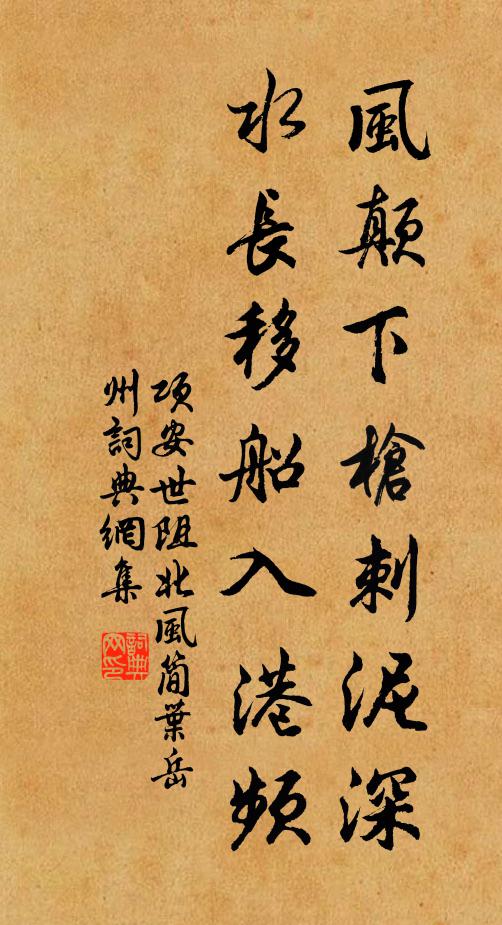 風顛下槍刺泥深
水長移船入港頻
項安世阻北風簡葉岳
州詞典網集
詞典
网印